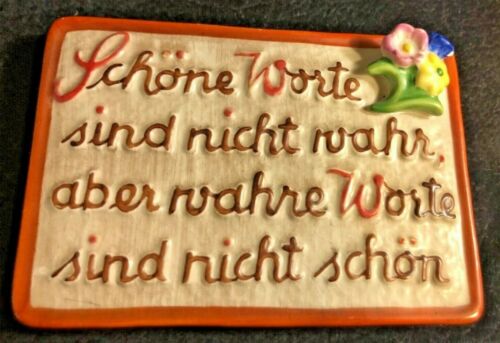 Schöne Worte
sind nicht wahr,
aber wahre Worte
sind nicht schön